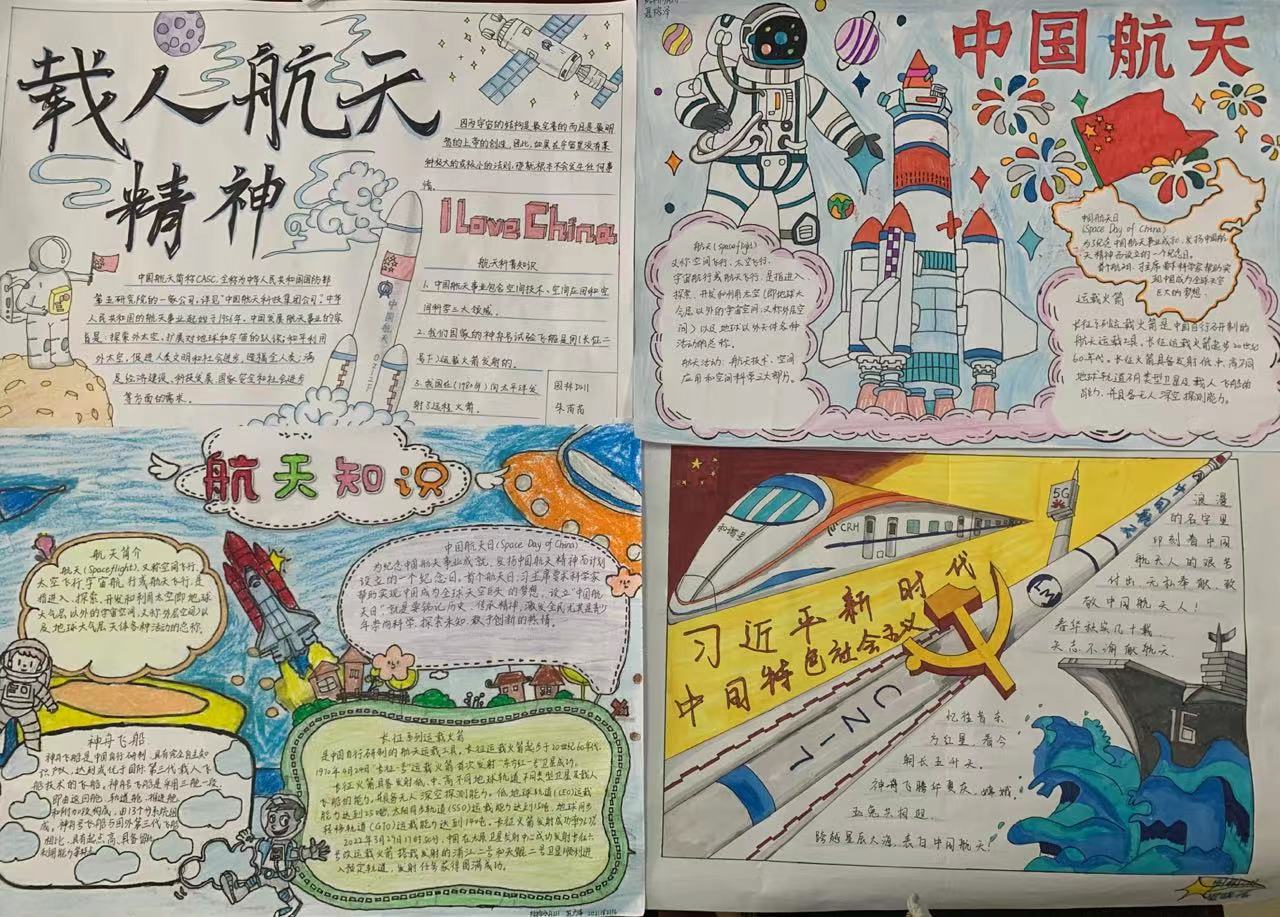 载人航天
精神
因为宇宙的结构是最完善的而且是最明
智的上帝的创造,因此,如果在宇宙里没有某
种极大的或极小的法则,那就根本不会发生任何事
情。
I Love China
航天科普知识
1. 中国航天事业包含空间技术、空间应用和空
间科学三大领域。
2. 我们国家的神舟号试验飞船是用《长征二
号F》运载火箭发射的。
3. 我国在(1980年)向太平洋发
射了远程火箭。
园林2011
中国航天简称CASC,全称为中华人民共和国国防部
第五研究院的一家公司,详见“中国航天科技集团公司”中华
人民共和国的航天事业起始于1956年。中国发展航天事业的宗
旨是:探索外太空,扩展对地球和宇宙的认识;和平利用
外太空,促进人类文明和社会进步,造福全人类;满
足经济建设、科技发展、国家安全和社会进步
等方面的需求。
中国航天
中国航天
航天(Spaceflight)
又称空间飞行、太空飞行、
宇宙航行或航天飞行,是指进入、
探索、开发和利用太空(即地球大
气层以外的宇宙空间,又称外层空
间)以及地球以外天体各种
活动的总称。
航天活动:航天技术、空间
应用和空间科学三大部分。
中国航天日
(Space Day of China)
为纪念中国航天事业成就,发扬中国航
天精神而设立的一个纪念日。
巨大的梦想。
运载火箭
长征系列运载火箭是中国自行研制的
航天运载工具。长征运载火箭起步于20世纪
60年代,长征火箭具备发射低、中、高不同
地球轨道不同类型卫星及载人飞船的
能力,并具备无人深空探测能力。
航天知识
航天简介
航天(Spaceflight),又称空间飞行、
太空飞行、宇宙航行或航天飞行,是
指进入、探索、开发和利用太空(即地球
大气层以外的宇宙空间,又称外层空间)以
及地球大气层天体各种活动的总称。
中国航天日(Space Day of China)
为纪念中国航天事业成就,发扬中国航天精神而计划
设立的一个纪念日,首个航天日,习主席要求科学家
帮助实现中国成为全球太空巨头的梦想。设立“中国航
天日”,就是要铭记历史、传承精神,激发全民尤其是青少
年崇尚科学、探索未知、敢于创新的热情。
神舟飞船
神舟飞船是中国自行研制,具有完全自主知
识产权,达到或优于国际第三代载人飞
船技术的飞船。神舟号飞船是采用三舱一段,
即由返回舱、轨道舱、推进舱
和附加段构成,由13个分系统组
成。神舟号飞船与国外第三代飞船
相比,具有起点高、具备留轨
利用能力等特点。
长征系列运载火箭
是中国自行研制的航天运载工具,长征运载火箭起步于20世纪60年代,
1970年4月24日“长征一号”运载火箭首次发射“东方红一号”卫星成功。
长征火箭具备发射低、中、高不同地球轨道不同类型卫星及载人
飞船的能力,并具备无人深空探测能力。低地球轨道(LEO)运载
能力达到25吨,太阳同步轨道(SSO)运载能力达到15吨,地球同步
转移轨道(GTO)运载能力达到14吨。
和谐号
CRH
5G
习近平新时代
中国特色社会主义
CZ1T
16
浪漫
的名字里
印刻着中国
航天人的艰苦
付出、无私奉献,致
敬中国航天人!
春华秋实几十载
矢志不渝献航天。
忆往昔东
方红星,看今
朝长五升天。
神舟飞腾华夏庆,嫦娥
玉兔共相迎
跨越星辰大海,表白中国航天!